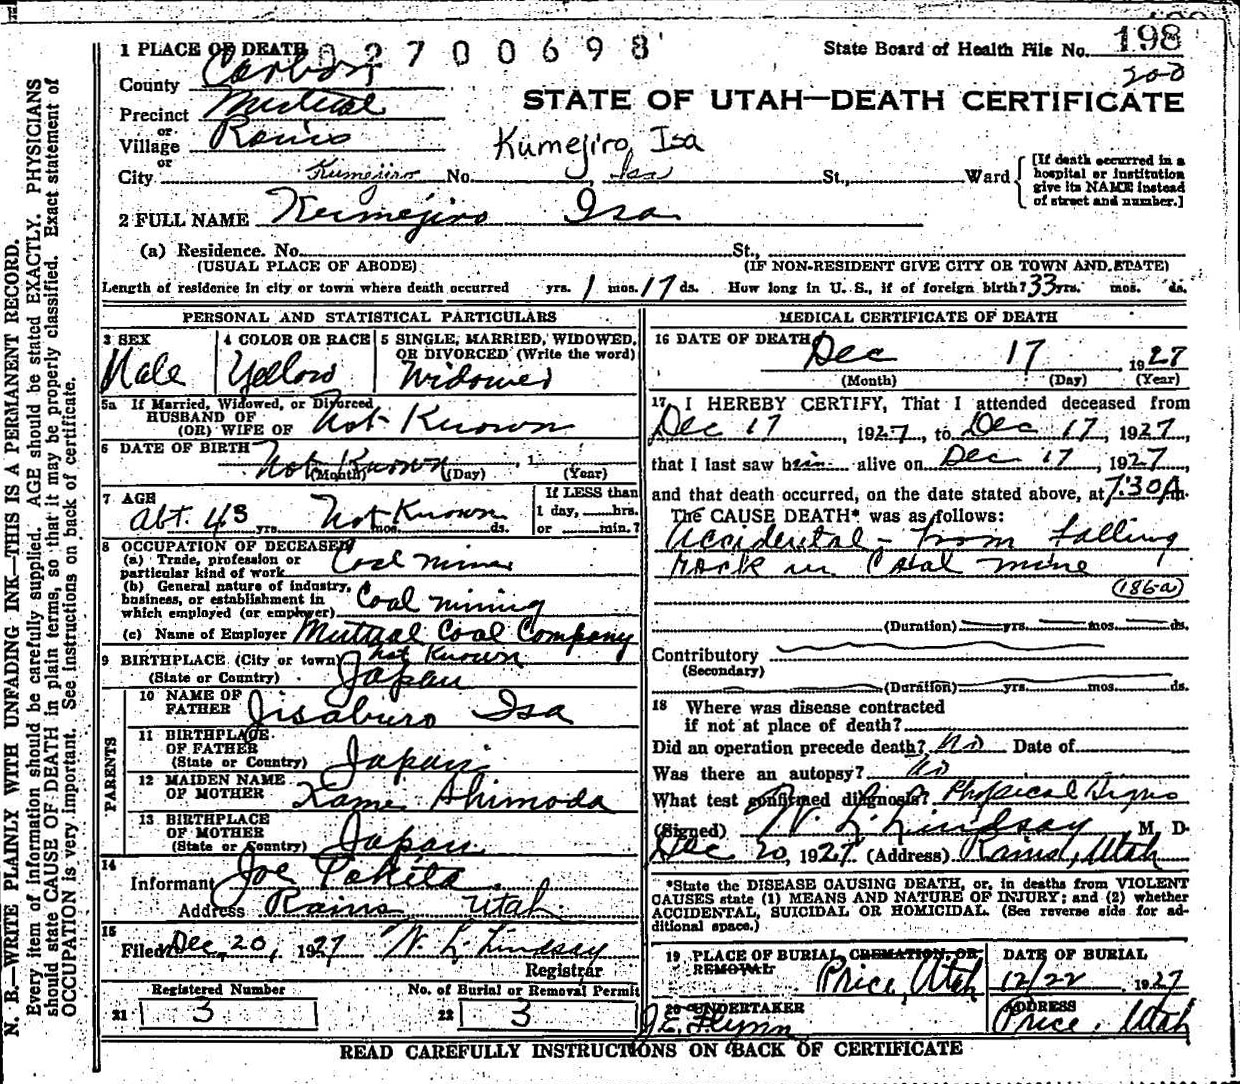 1 PLACE OF DEATH 02700698 State Board of Health File No. 198
County Carbon 200
Precinct Mutual STATE OF UTAH—DEATH CERTIFICATE
or
Village Rains Kumejiro, Isa
or
City Kumejiro No. Isa St., Ward [If death occurred in a hospital or institution give its NAME instead of street and number.]
2 FULL NAME Kumejiro Isa
(a) Residence. No. St.,
(USUAL PLACE OF ABODE) (IF NON-RESIDENT GIVE CITY OR TOWN AND STATE)
Length of residence in city or town where death occurred yrs. 1 mos. 17 ds. How long in U. S., if of foreign birth? 33 yrs. mos. ds.
PERSONAL AND STATISTICAL PARTICULARS
3 SEX 4 COLOR OR RACE 5 SINGLE, MARRIED, WIDOWED,
OR DIVORCED (Write the word)
Male Yellow Widowed
5a If Married, Widowed, or Divorced
HUSBAND OF
(OR) WIFE OF Not Known
6 DATE OF BIRTH Not Known , 1
(Month) (Day) (Year)
7 AGE If LESS than
Abt. 43 yrs. Not Known mos. ds. 1 day, hrs.
or min.?
8 OCCUPATION OF DECEASED
(a) Trade, profession or
particular kind of work Coal miner
(b) General nature of industry,
business, or establishment in
which employed (or employer) Coal mining
(c) Name of Employer Mutual Coal Company
9 BIRTHPLACE (City or town) Not Known
(State or Country) Japan
PARENTS
10 NAME OF
FATHER Jisaburo Isa
11 BIRTHPLACE
OF FATHER
(State or Country) Japan
12 MAIDEN NAME
OF MOTHER Kame Shimoda
13 BIRTHPLACE
OF MOTHER
(State or Country) Japan
14
Informant Joe Takita
Address Rains Utah
15
Filed Dec, 20, 1927 W. L. Lindsay
Registrar
Registered Number No. of Burial or Removal Permit
21 3 22 3
MEDICAL CERTIFICATE OF DEATH
16 DATE OF DEATH Dec 17 1927
(Month) (Day) (Year)
17 I HEREBY CERTIFY, That I attended deceased from
Dec 17, 1927, to Dec 17, 1927,
that I last saw him alive on Dec 17, 1927,
and that death occurred, on the date stated above, at 7:30A m.
The CAUSE DEATH* was as follows:
Accidental - From falling
rock in Coal mine
(186-a)
(Duration) yrs. mos. ds.
Contributory
(Secondary)
(Duration) yrs. mos. ds.
18 Where was disease contracted
if not at place of death?
Did an operation precede death? No Date of
Was there an autopsy? No
What test confirmed diagnosis? Physical Signs
(Signed) W. L. Lindsay M. D.
Dec 20, 1927 (Address) Rains, Utah
*State the DISEASE CAUSING DEATH, or, in deaths from VIOLENT
CAUSES state (1) MEANS AND NATURE OF INJURY; and (2) whether
ACCIDENTAL, SUICIDAL OR HOMICIDAL. (See reverse side for ad-
ditional space.)
19 PLACE OF BURIAL CREMATION, OR DATE OF BURIAL
REMOVAL Price, Utah 12/22 1927
20 UNDERTAKER ADDRESS
J.E. Flynn Price, Utah
READ CAREFULLY INSTRUCTIONS ON BACK OF CERTIFICATE
N. B.—WRITE PLAINLY WITH UNFADING INK—THIS IS A PERMANENT RECORD.
Every item of information should be carefully supplied. AGE should be stated EXACTLY. PHYSICIANS
should state CAUSE OF DEATH in plain terms, so that it may be properly classified. Exact statement of
OCCUPATION is very important. See instructions on back of certificate.